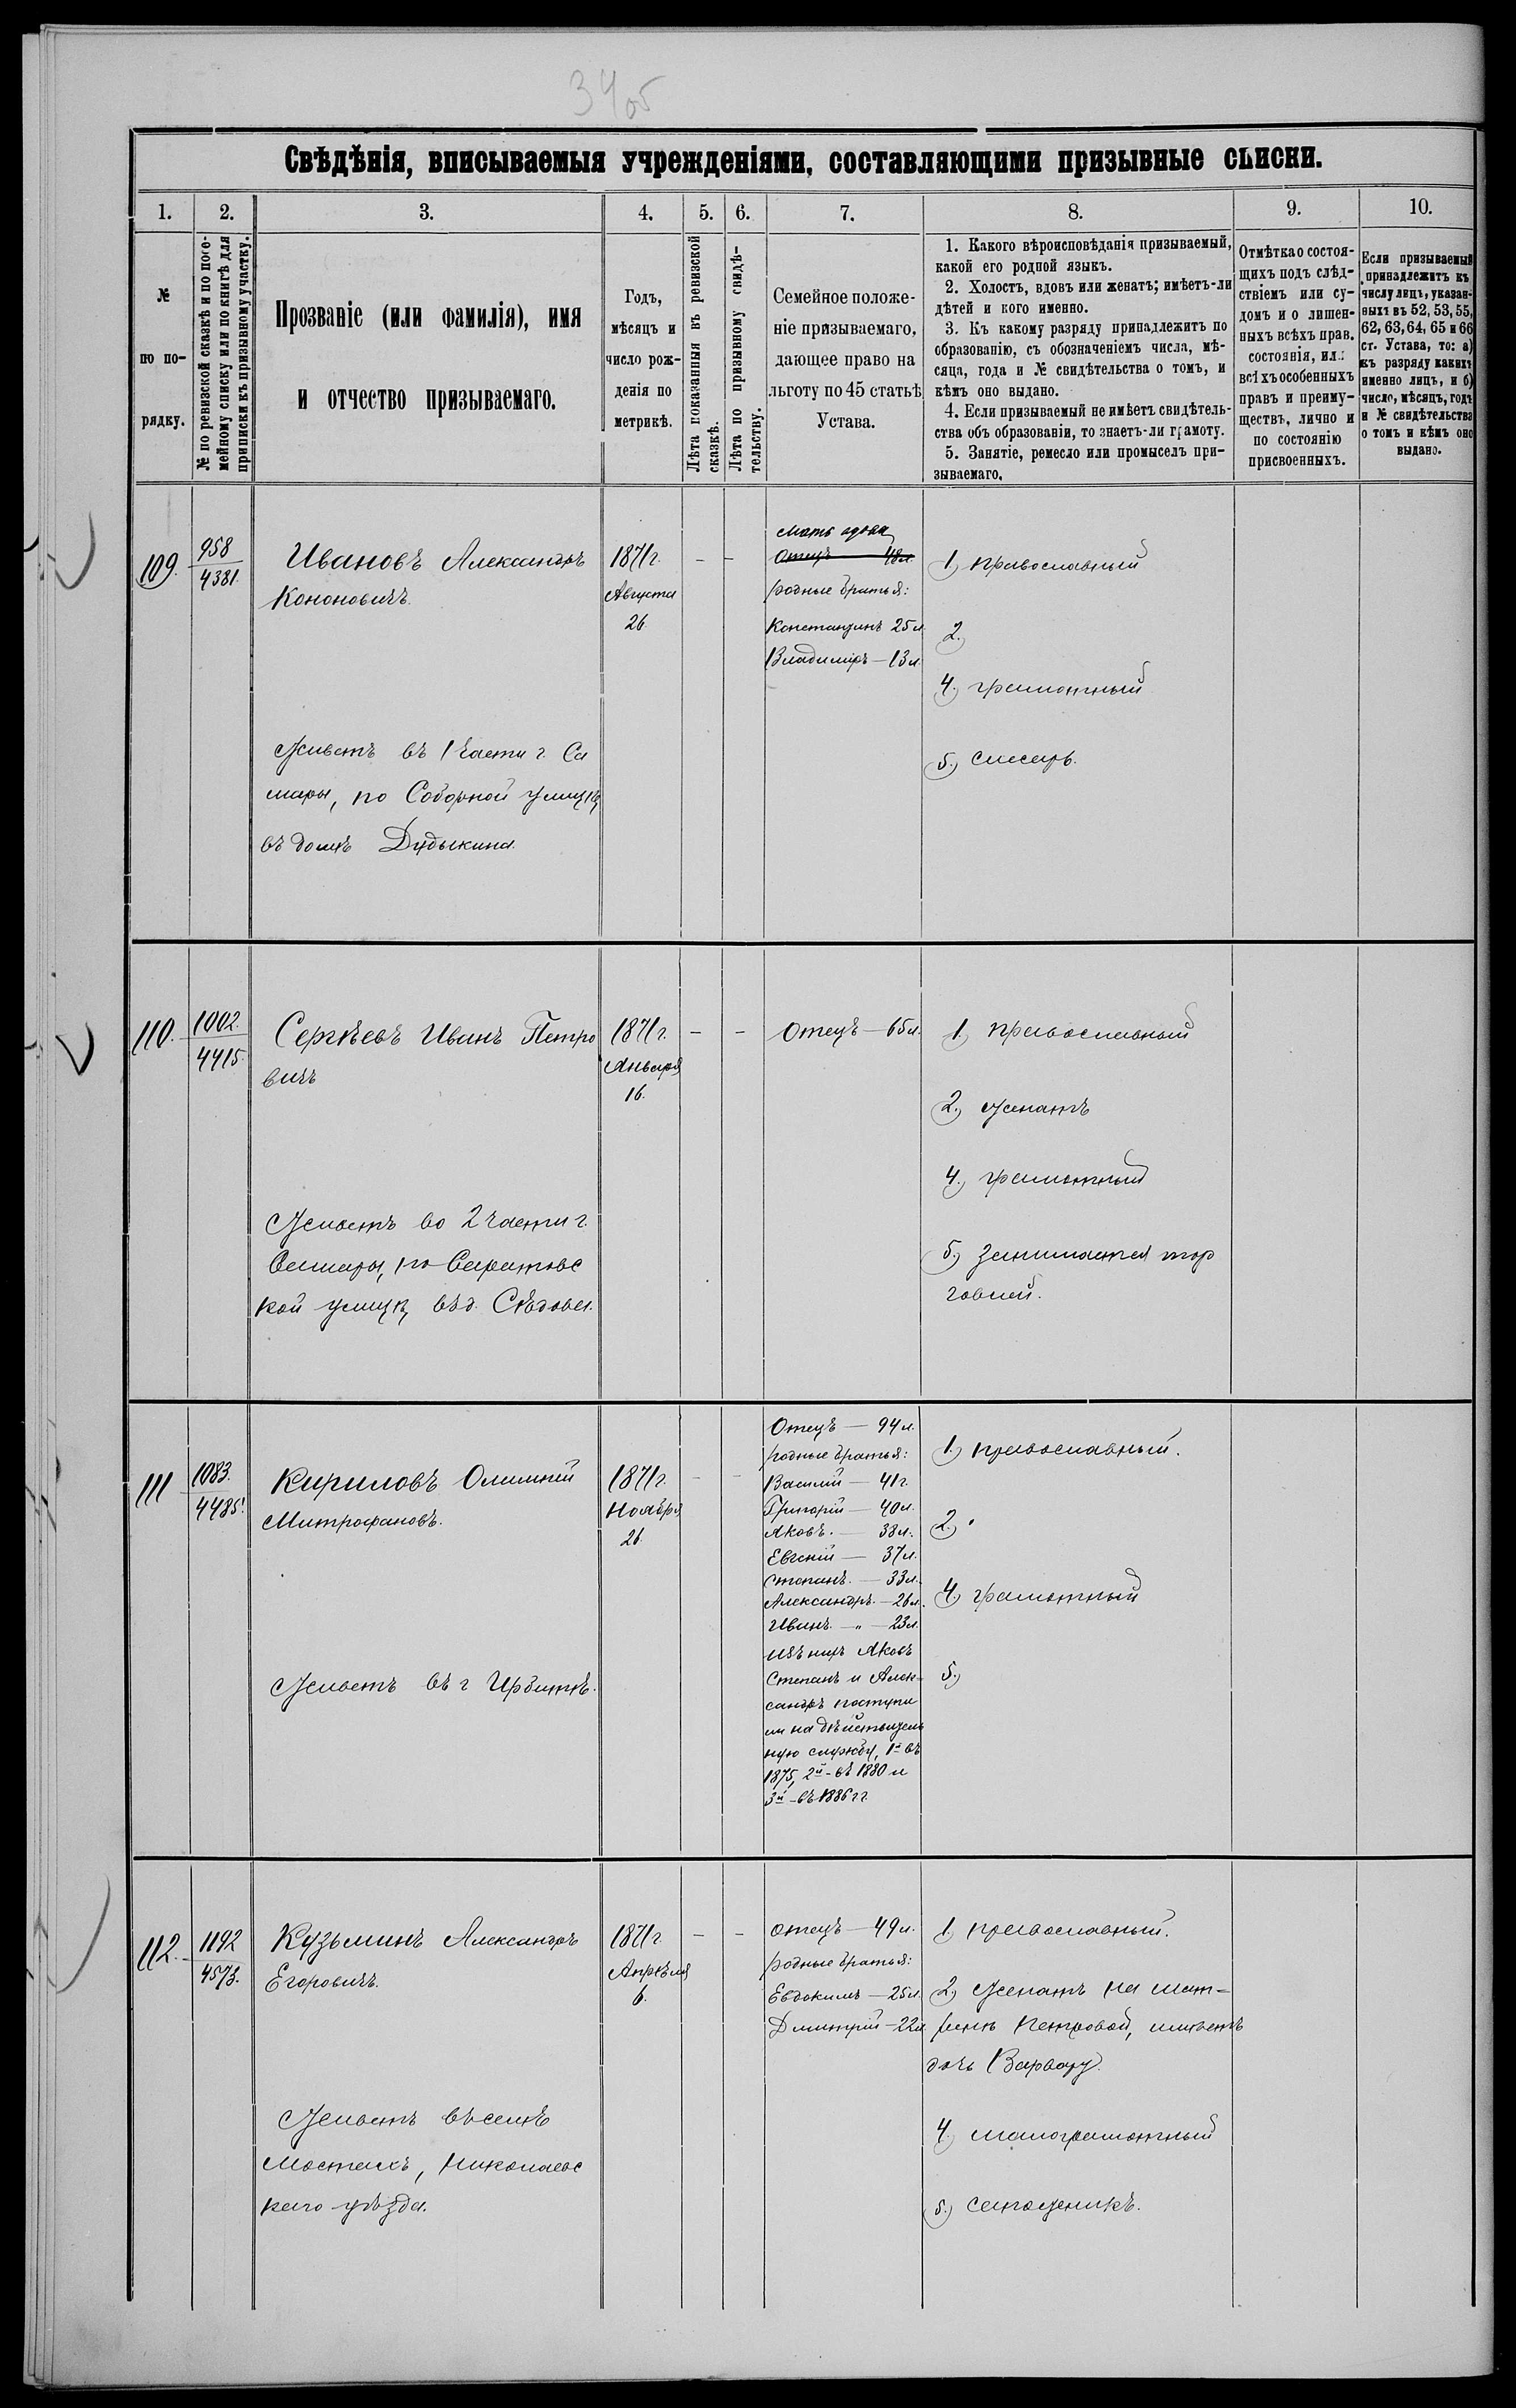 34об
Свѣдѣнія, вписываемыя учрежденіями, составляющими призывные списки.
1.
2.
3.
4.
5.
6.
7.
8.
9.
10.
№
по по-
рядку.
№ по ревизской сказкѣ и по посе-
мейному списку или по книгѣ для
приписки къ призывному участку.
Прозваніе (или фамилія), имя
и отчество призываемаго.
Годъ,
мѣсяцъ и
число рож-
денія по
метрикѣ.
Лѣта показанныя въ ревизской
сказкѣ.
Лѣта по призывному свидѣ-
тельству.
Семейное положе-
ніе призываемаго,
дающее право на
льготу по 45 статьѣ
Устава.
1. Какого вѣроисповѣданія призываемый,
какой его родной языкъ.
2. Холостъ, вдовъ или женатъ; имѣетъ-ли
дѣтей и кого именно.
3. Къ какому разряду принадлежитъ по
образованію, съ обозначеніемъ числа, мѣ-
сяца, года и № свидѣтельства о томъ, и
кѣмъ оно выдано.
4. Если призываемый не имѣетъ свидѣтель-
ства объ образованіи, то знаетъ-ли грамоту.
5. Занятіе, ремесло или промыселъ при-
зываемаго.
Отмѣтка о состоя-
щихъ подъ слѣд-
ствіемъ или су-
домъ и о лишен-
ныхъ всѣхъ прав.
состоянія, или
всѣхъ особенныхъ
правъ и преиму-
ществъ, лично и
по состоянію
присвоенныхъ.
Если призываемый
принадлежитъ къ
числу лицъ, указан-
ныхъ въ 52, 53, 55,
62, 63, 64, 65 и 66
ст. Устава, то: а)
къ разряду какихъ
именно лицъ, и б)
число, мѣсяцъ, годъ
и № свидѣтельства
о томъ и кѣмъ оно
выдано.
109.
958
4381.
Ивановъ Александръ
Кононовичъ.
Живетъ въ 1 части г. Са
мары, по Соборной улицѣ,
въ домѣ Дудыкина.
1871 г.
Августа
26
–
–
Мать вдова
Отецъ 48 л.
родные братья:
Константинъ 25 л.
Владиміръ – 13 л.
1) православный
2.
4.) грамотный
5.) слесарь.
110.
1002.
4415.
Сергѣевъ Иванъ Петро
вичъ
Живетъ во 2 части г.
Самары, по Саратовс
кой улицѣ, въ д. Сѣдова.
1871 г.
Января
16.
–
–
Отецъ – 65 л.
1) православный
2.) женатъ
4.) грамотный
5.) занимается тор
говлей.
111
1083.
4485.
Кириловъ Олимпій
Митрофановъ.
Живетъ въ г. Ирбитѣ.
1871 г.
Ноября
26.
–
–
Отецъ – 94 л.
родные братья:
Василій – 41 г.
Григорій – 40 л.
Яковъ. – 38 л.
Евгеній – 37 л.
Степанъ. – 33 л.
Александръ. – 26 л.
Иванъ. – „ – 23 л.
изъ нихъ Яковъ
Степанъ и Алек-
сандръ поступи
ли на дѣйствитель
ную службу, 1й въ
1875, 2й – въ 1880 и
3й – въ 1886 гг.
1.) православный.
2.)
4) грамотный
5.)
112.
1192
4573.
Кузьминъ Александръ
Егоровичъ.
Живетъ въ селѣ
Мостахъ, Николаевс
каго уѣзда.
1871 г.
Апрѣля
6.
–
–
отецъ – 49 л.
родные братья:
Евдокимъ – 25 л.
Дмитрій – 22 л.
1) православный.
2) Женатъ на Мат-
ренѣ Петровой, имѣетъ
дочь Варвару.
4.) малограмотный
5.) сапожникъ.